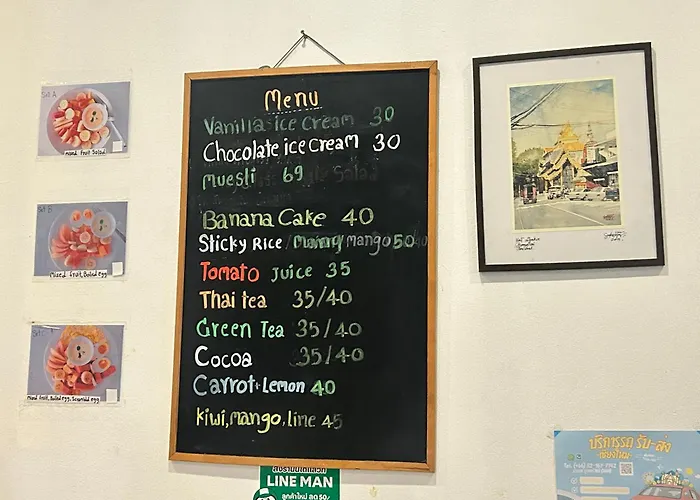 Menu
Vanilla ice cream 30
Chocolate ice cream 30
muesli 69
Banana Cake 40
Sticky Rice mango 50
Tomato juice 35
Thai tea 35/40
Green Tea 35/40
Cocoa 35/40
Carrot+Lemon 40
kiwi,mango,line 45
Set A
Mixed Fruit Salad
Set B
Mixed fruit, Boiled egg
Mixed fruit, Boiled egg, Scrambled egg
LINE MAN
ลูกค้าใหม่ ลด 50%
บริการรถ รับ-ส่ง